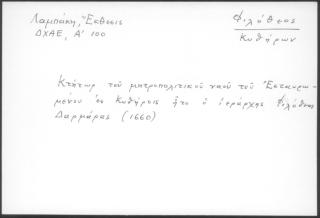 Λαμπάκη, Ἔκθεσις
ΔΧΑΕ, Α' 100
Φιλόθεος
Κυθήρων
Κτήτωρ τοῦ μητροπολιτικοῦ ναοῦ τοῦ Ἐσταυρω-
μένου ἐν Κυθήροις ἦτο ὁ ἱεράρχης Φιλόθεος
Δαρμάρος (1660)